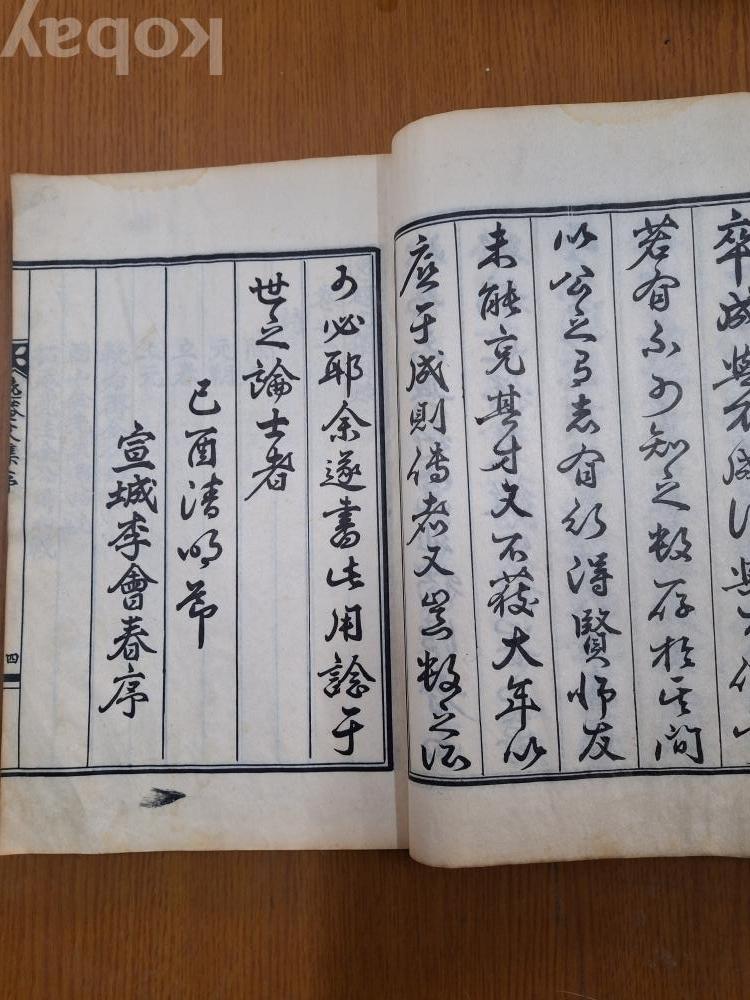 卒成與不成
若有不可知之數存於其間
以公之有志有行得賢師友
未能充其才又不獲大年以
底于成則傳者又豈數之
可必耶余遂書此用諗于
世之論士者
己酉清明節
宣城李會春序
文集序
四
kobay